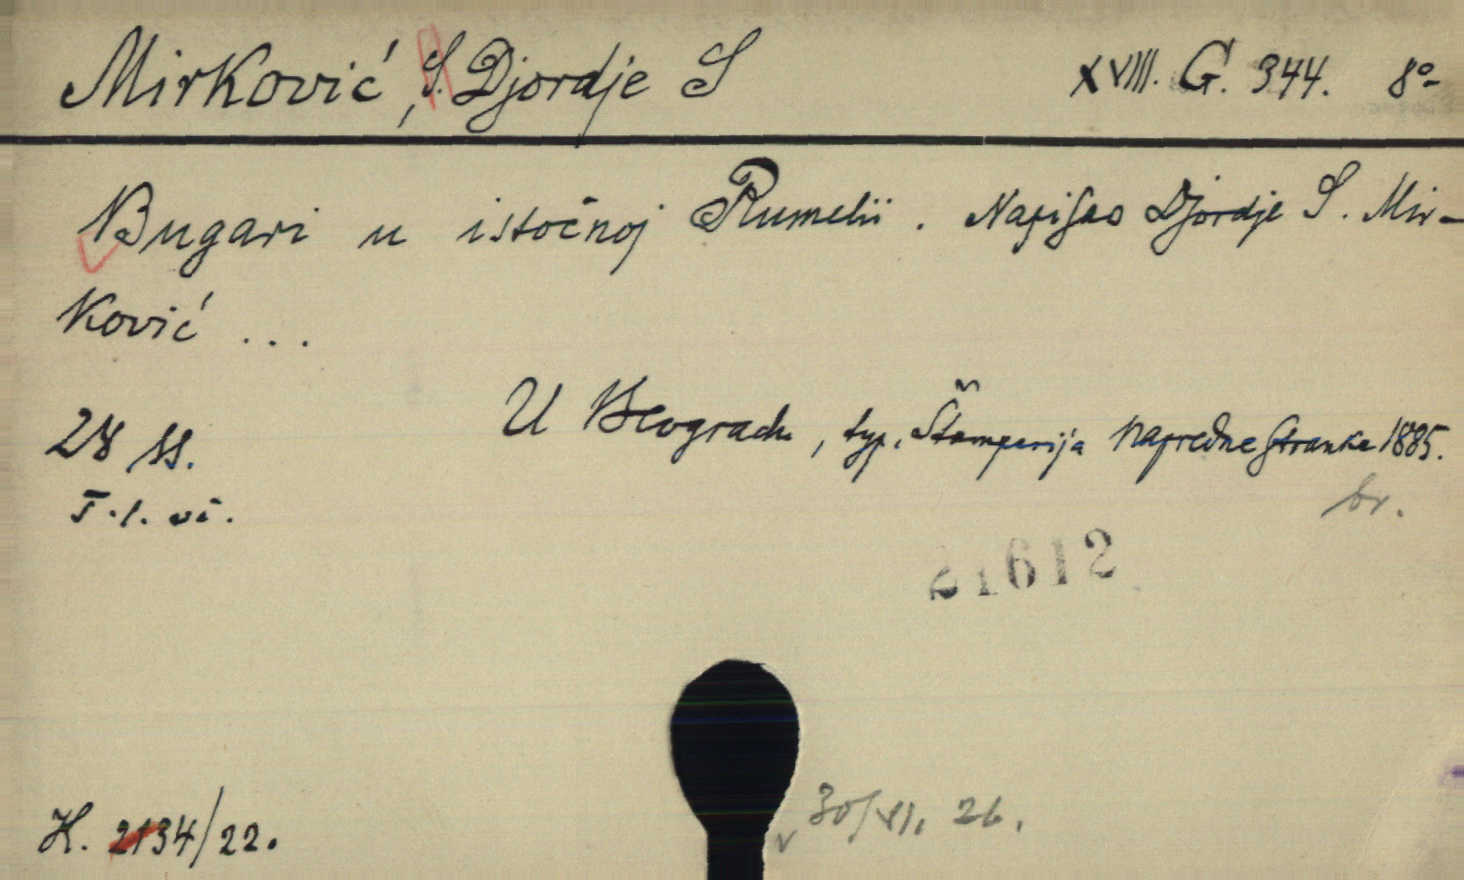 Mirković, S. Djordje S XVIII. G. 344. 8°-
Bugari u istočnoj Rumelii. Napisao Djordje S. Mir-
ković ...
28 ss. U Beogradu, typ. Štamparija Napredne Stranke 1885.
br.
21612
H. 2134/22. 30/VI. 26.